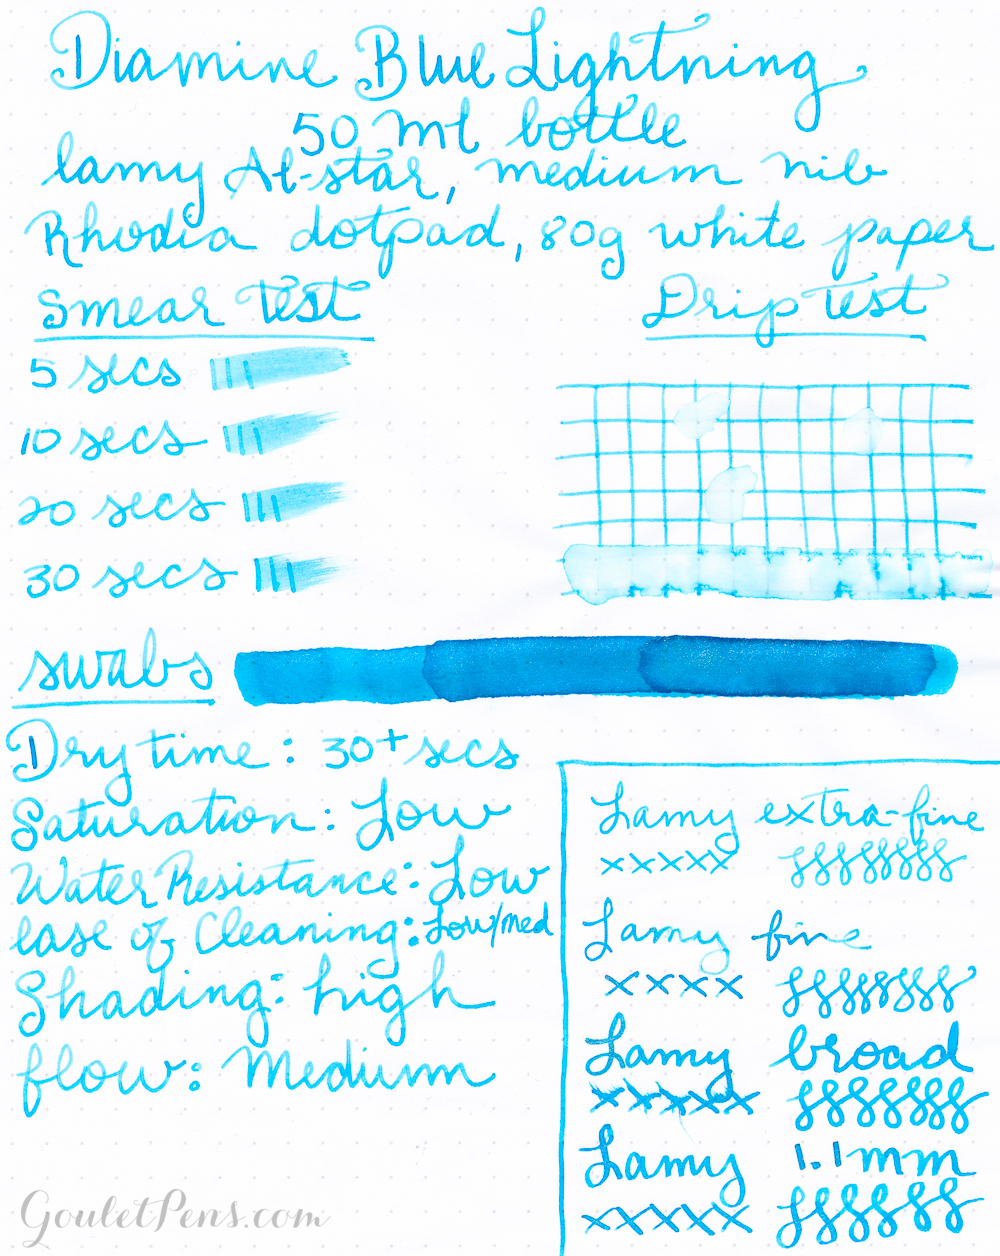 Diamine Blue Lightning
50 ml bottle
lamy Al-star, medium nib
Rhodia dotpad, 80g white paper
Smear test
Drip test
5 secs
10 secs
20 secs
30 secs
swabs
Dry time: 30+ secs
Saturation: Low
Water Resistance: Low
ease of Cleaning: Low/med
Shading: high
flow: Medium
Lamy extra-fine
xxxxx
Lamy fine
xxxx
Lamy broad
xxxxx
Lamy 1.1mm
xxxxx
GouletPens.com